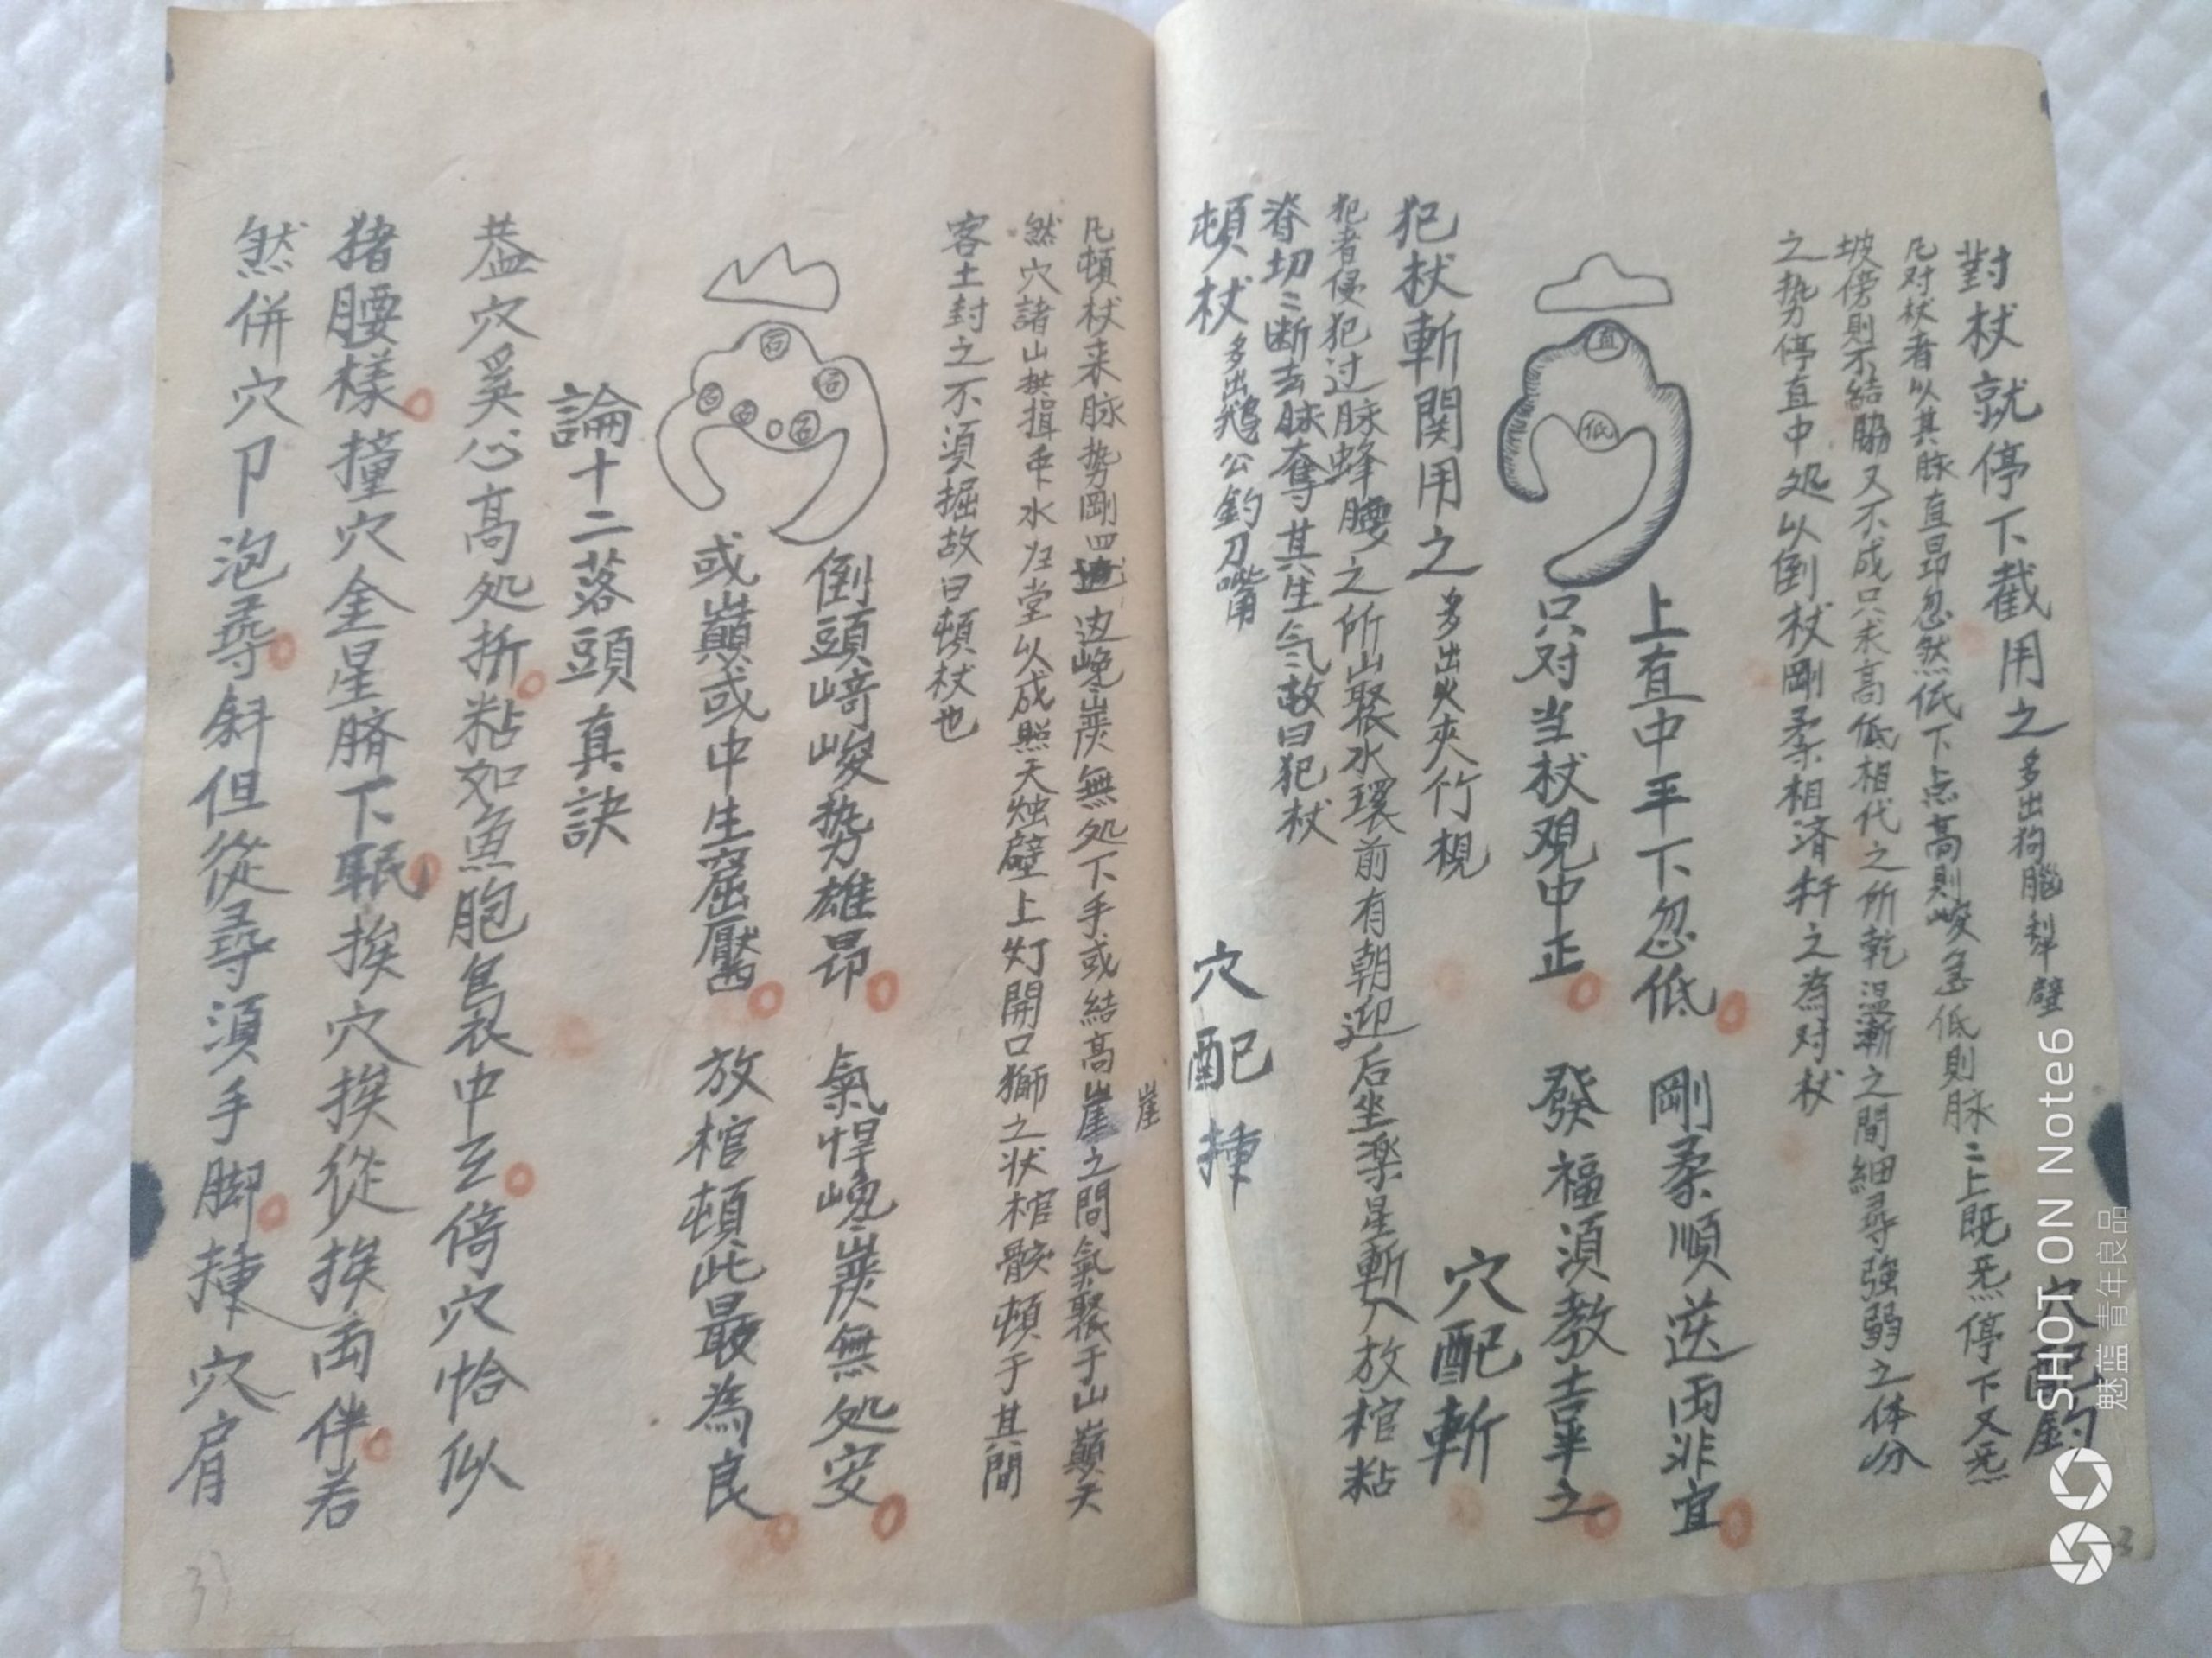 對杖就停下截用之 多出狗腦犁壁 穴配釣
凡对杖者以其脉直昂忽然低下点高則峻急低則脉二上既无停下又无
坡傍則不結腦又不成只求高低相代之所乾温漸之間細尋強弱之体分
之势停直中処以倒杖剛柔相済幹之為对杖
直
低
上直中平下忽低 剛柔順送両非宜
只对当杖观中正 發福須教吉半之
犯杖斬関用之 多出火夾竹梘 穴配斬
犯者侵犯过脉蜂腰之所山聚水環前有朝迎后坐楽星斬入放棺粘
脊切二断去脉奪其生气故曰犯杖
頓杖 多出鵝公釣刀嘴 穴配揰
凡頓杖来脉势剛四边巉巗無処下手或結高崖之間氣聚于山巔天
崖
然穴諸山拱揖乑水归堂以成照天烛壁上灯開口獅之状棺骸頓于其間
客土封之不須掘故曰頓杖也
石
石
石
石
石
倒頭﨑峻势雄昂 氣悍巉巗無処安
或巔或中生窟靨 放棺頓此最為良
論十二落頭真訣
盖穴奚心高処折粘如魚胞袋中玄倚穴恰似
猪腰樣撞穴金星臍下眠挨穴挨從挨両伴若
然併穴卩泡尋斜但從尋須手脚揰穴肩
SHOT ON Note6
魅蓝 青年良品